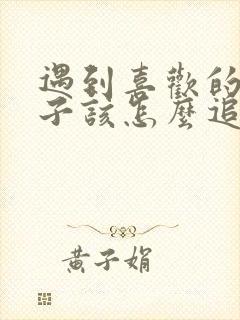 遇到喜歡的
子該怎麼追
黃子娟